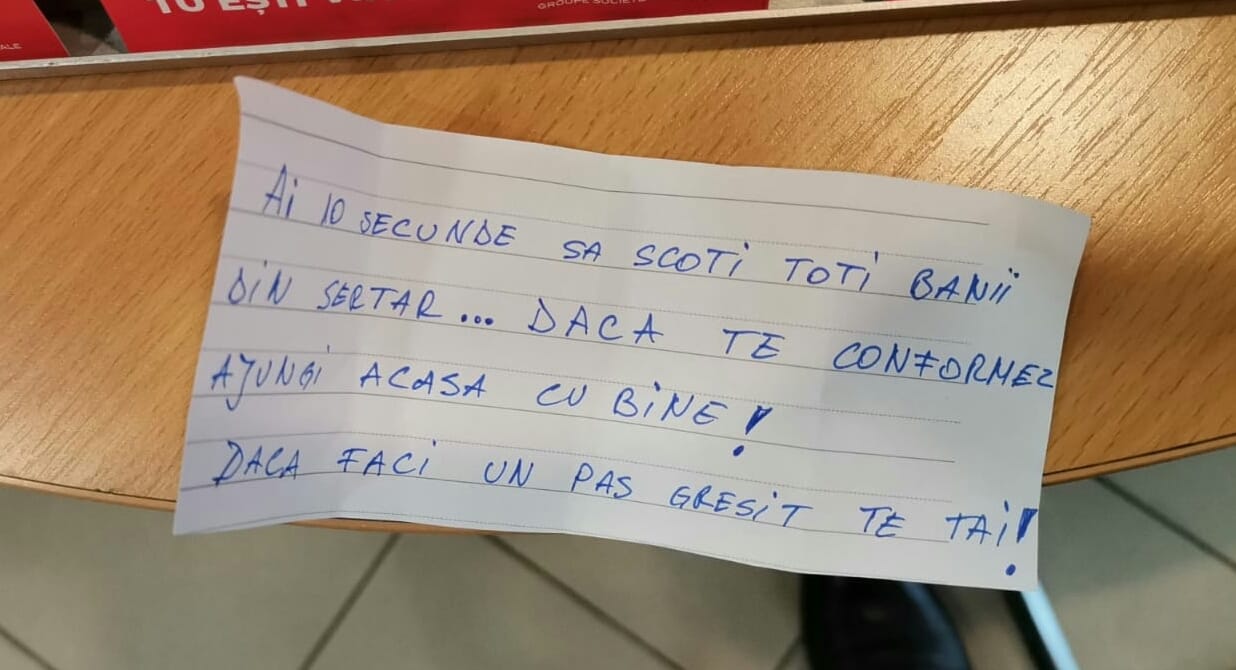 TU EȘTI
GROUPE SOCIETE
ALE
Ai 10 SECUNDE SA SCOTi TOTi BANii
DiN SERTAR... DACA TE CONFORMEZ
AJUNGi ACASA CU BiNE!
DACA FACi UN PAS GRESiT TE TAi!